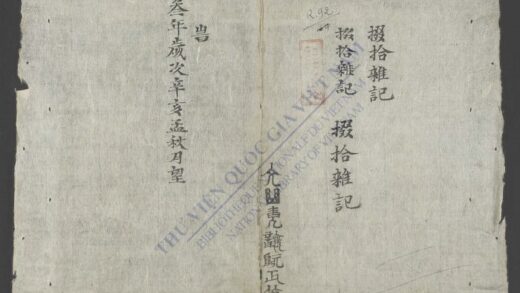 R.92
掇拾雜記
掇拾雜記
掇拾雜記
叁年歲次辛亥孟秋月望
THƯ VIỆN QUỐC GIA VIỆT NAM
BIBLIOTHÈQUE NATIONALE DU VIETNAM
NATIONAL LIBRARY OF VIETNAM